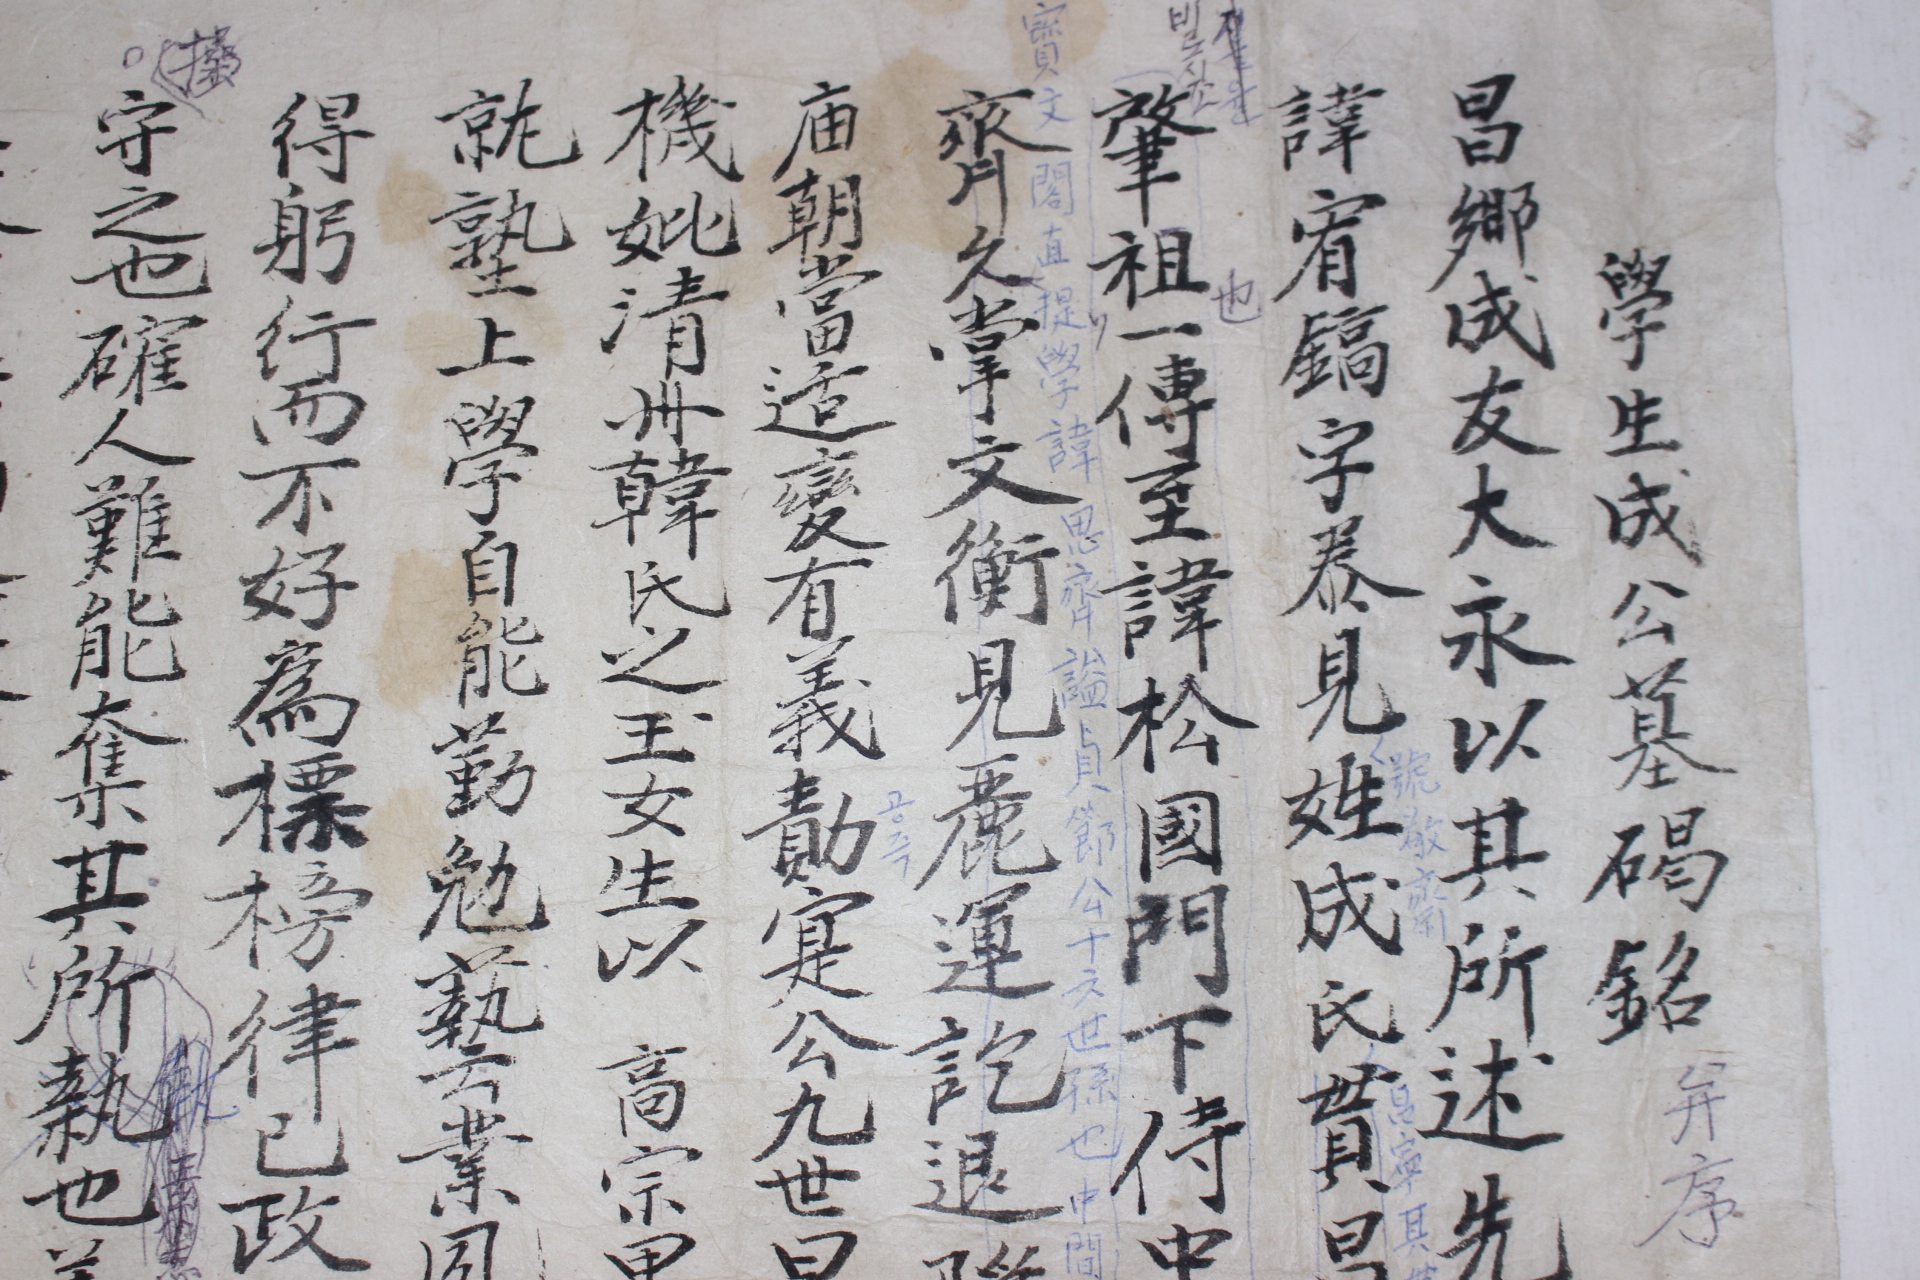 學生成公墓碣銘 幷序
昌鄉成友大永以其所述先
諱宥鎬字泰見姓成氏貫昌
號敬齋
昌寧其
肇祖一傳至諱松國門下侍中
也
寶文閣直提學諱思齊謚貞節公十六世孫也中間
齊久掌文衡見麗運訖退
廟朝當适變有義勣寔公九世曰
공적
機妣清州韓氏之玉女生以 高宗甲
就塾上學自能勤勉藝業同
得躬行而不好爲標榜律己政
守之也確人難能奪其所執也
操